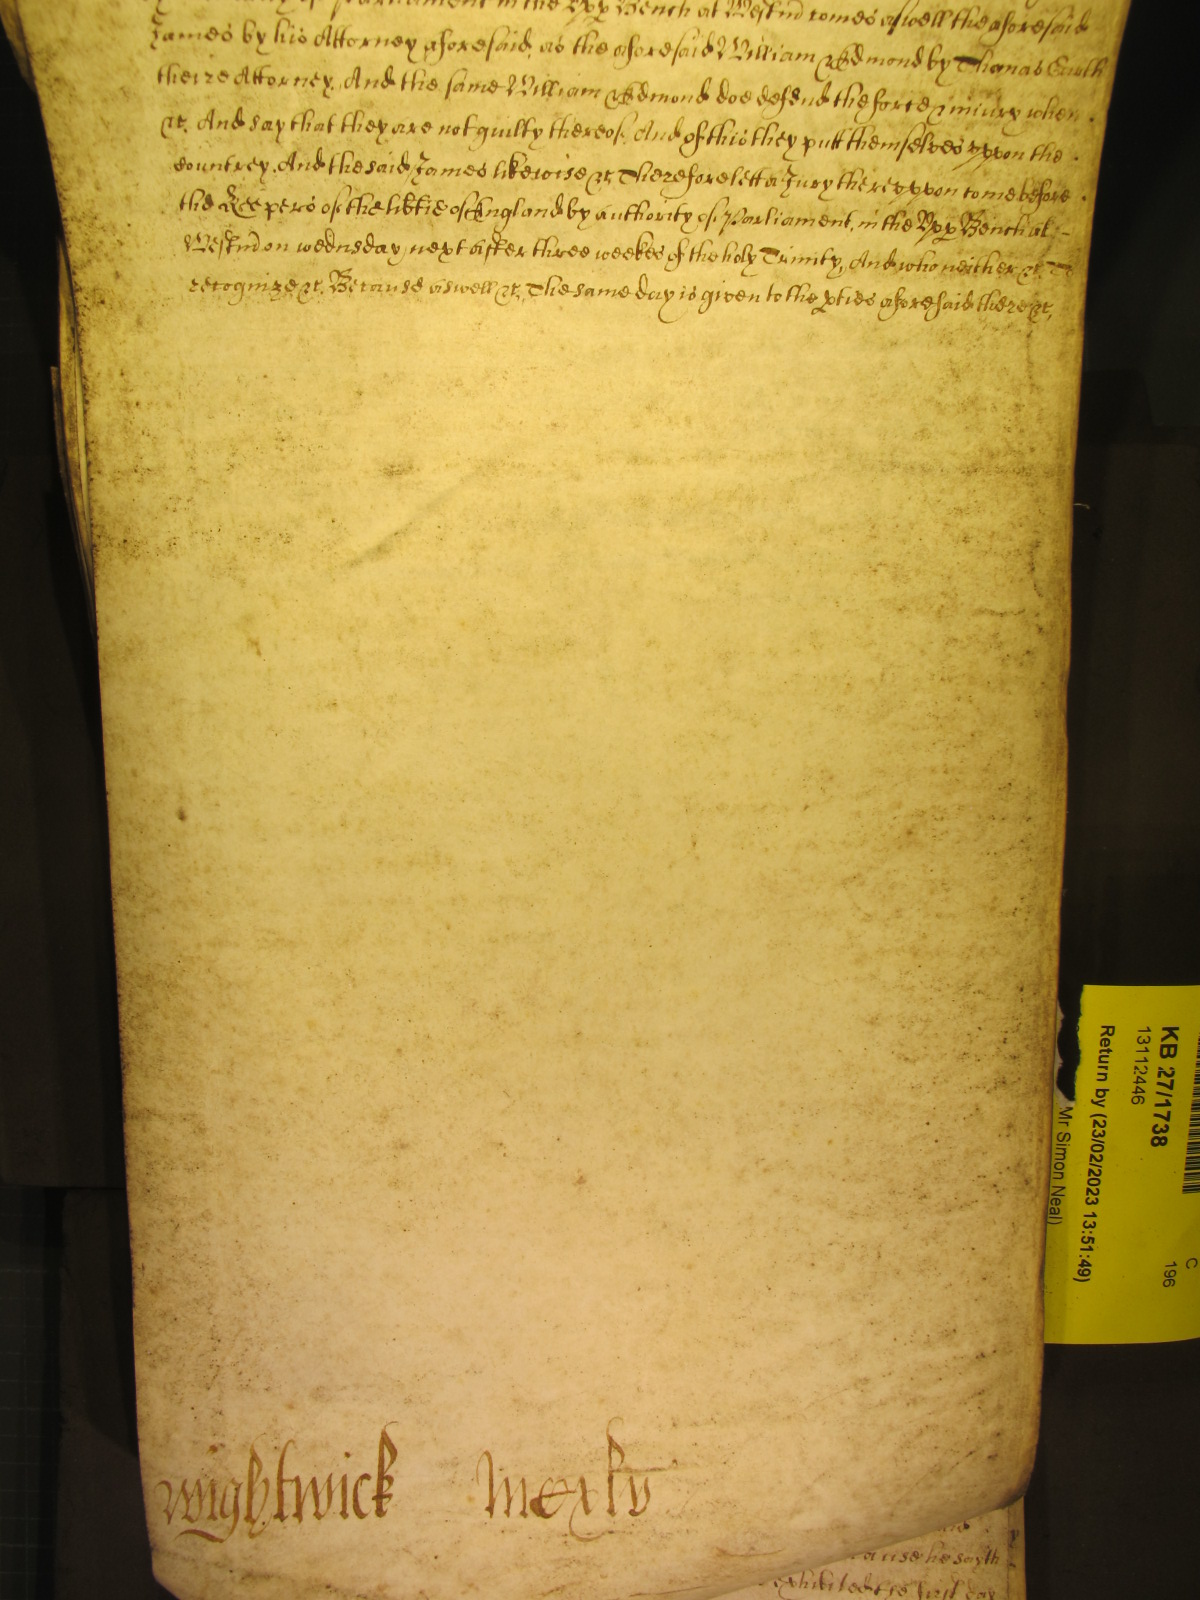 Parliament in the Upp Bench at Westmr comes aswell the aforesaid
James by his Attorney aforesaid, as the aforesaid William & Edmond by Thomas
theire Attorney. And the same William & Edmond doe defend the force & iniury when
&c. And say that they are not guilty thereof. And of this they putt themselves uppon the
countrey. And the said James likewise &c Therefore lett a Jury thereuppon come before
the Keepers of the libtie of England by authority of Parliament, in the Upp Bench at
Westmr on wednsday next after three weekes of the holy Trinity, And who neither &c To
recognize &c. Because aswell &c, The same day is given to the pties aforesaid there &c,
Wightwick
KB 27/1738
13112446
Return by (23/02/2023 13:51:49)
Mr Simon Neal)
C
196
cause he sayth
exhibited the first day